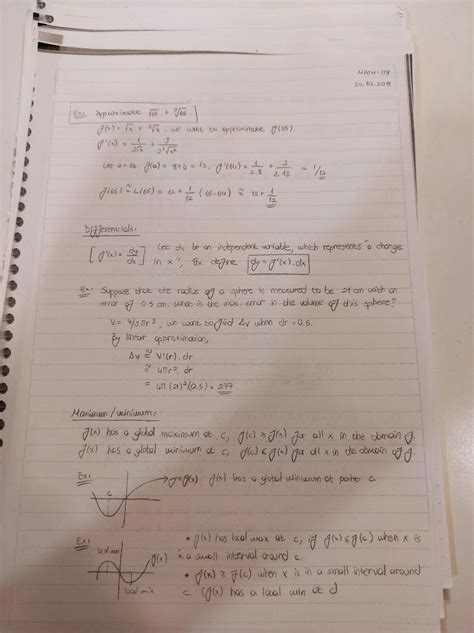 MATH-119
24.10.2019
Ex: Approximate √65 + ∛65.
f(x) = √x + ∛x, we want to approximate f(65).
f'(x) = 1/(2√x) +
Let a = 64 f(a) = 8+4 = 12, f'(64) = 1/2.8 + = 1/12
f(65) ≈ L(65) = 12 + 1/12 (65-64) ≈ 12 + 1/12
Differentials:
[f'(x) = dy/dx] Let dx be an independent variable, which represents "a change
in x", define dy = f'(x).dx
Ex: Suppose that the radius of a sphere is measured to be 21 cm with an
error of 0.5 cm. What is the max. error in the volume of this sphere?
V = 4/3πr³, we want to find ΔV when dr = 0.5.
By linear approximation,
ΔV ≅ V'(r).dr
≅ 4πr².dr
= 4π(21)²(0.5) = 277
Maximum / minimum:
f(x) has a global maximum at c, f(c) ≥ f(x) for all x in the domain of f.
f(x) has a global minimum at c, f(c) ≤ f(x) for all x in the domain of f.
Ex: y = f(x) f(x) has a global minimum at point c.
c
Ex: • f(x) has local max at c, if f(x) ≤ f(c) when x is
local max f(x) in a small interval around c.
• f(x) ≥ f(c) when x is in a small interval around
local min c (f(x) has a local min at d